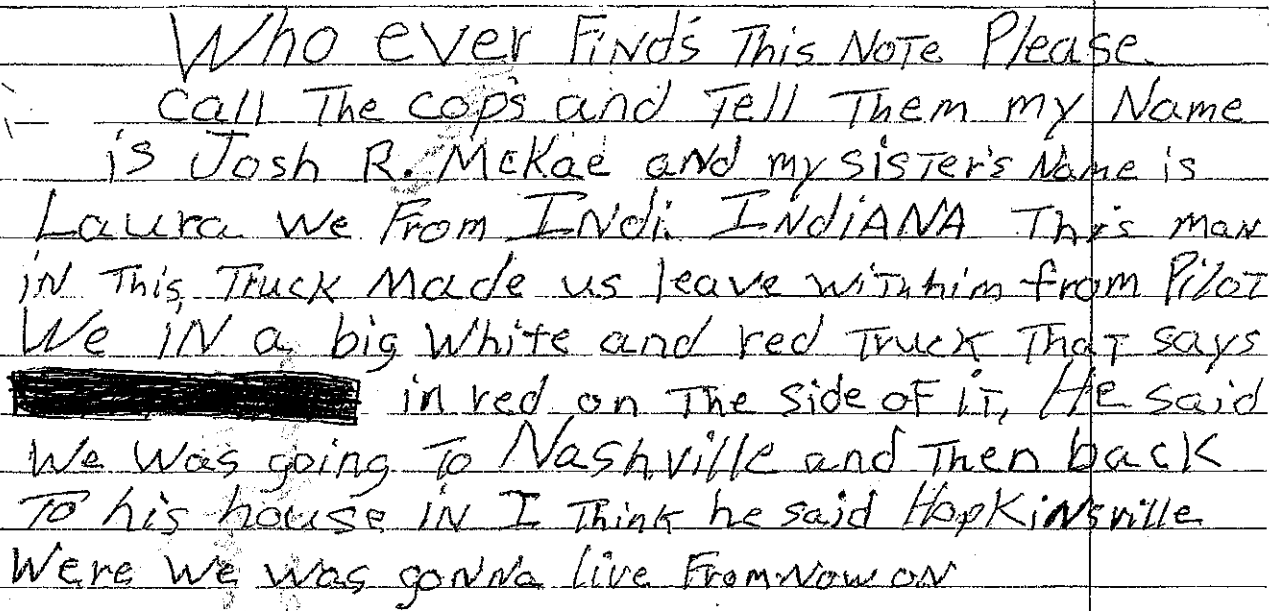 Who ever Finds This Note Please
call The cops and Tell Them my Name
is Josh R. McKae and my sisTer's Name is
Laura We From INdi. INdiANA This man
iN This Truck Made us leave wiTh him from PiloT
We iN a big White and red Truck ThaT says
in red on The side oF iT, He said
We Was going To Nashville and Then back
To his house iN I Think he said HopKiNsville
Were We Was goNNa live From Now oN